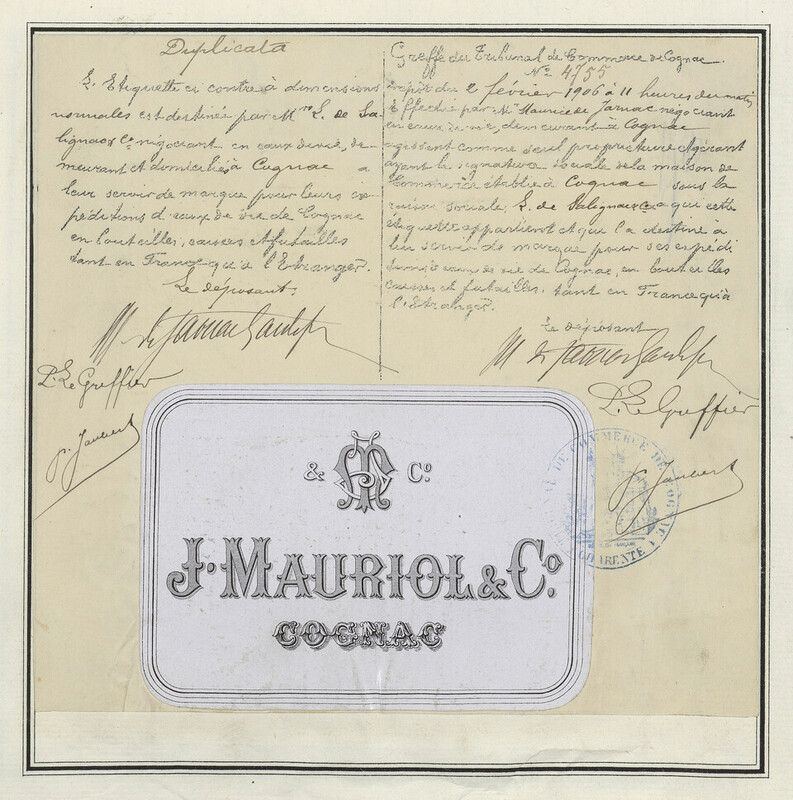 Duplicata
L'Etiquette ci contre à dimensions
normales est destinée par Mrs L. de Sa-
lignac & Co négociant en eaux de vie, de-
meurant et domiciliés à Cognac a
leur servir de marque pour leurs ex-
péditions d'eaux de vie de Cognac
en bouteilles, caisses et futailles
tant en France qu'à l'Etranger.
Le déposant,
P. Le Greffier
Greffe du Tribunal de Commerce de Cognac.
No 4755
Dépôt du 2 février 1906 à 11 heures du matin
Effectué par Mr Maurice de Jarnac négociant
en eaux de vie, demeurant à Cognac
agissant comme seul propriétaire & gérant
ayant la signature sociale de la maison de
Commerce établie à Cognac sous la
raison sociale, L. de Salignac & Co a qui cette
étiquette appartient et qui la destine à
lui servir de marque pour ses expédi
tions d'eaux de vie de Cognac, en bouteilles
caisses et futailles, tant en France qu'à
l'Etranger.
Le déposant
P. Le Greffier
TRIBUNAL DE COMMERCE DE COGNAC
CHARENTE
& Co
J. MAURIOL & Co
COGNAC